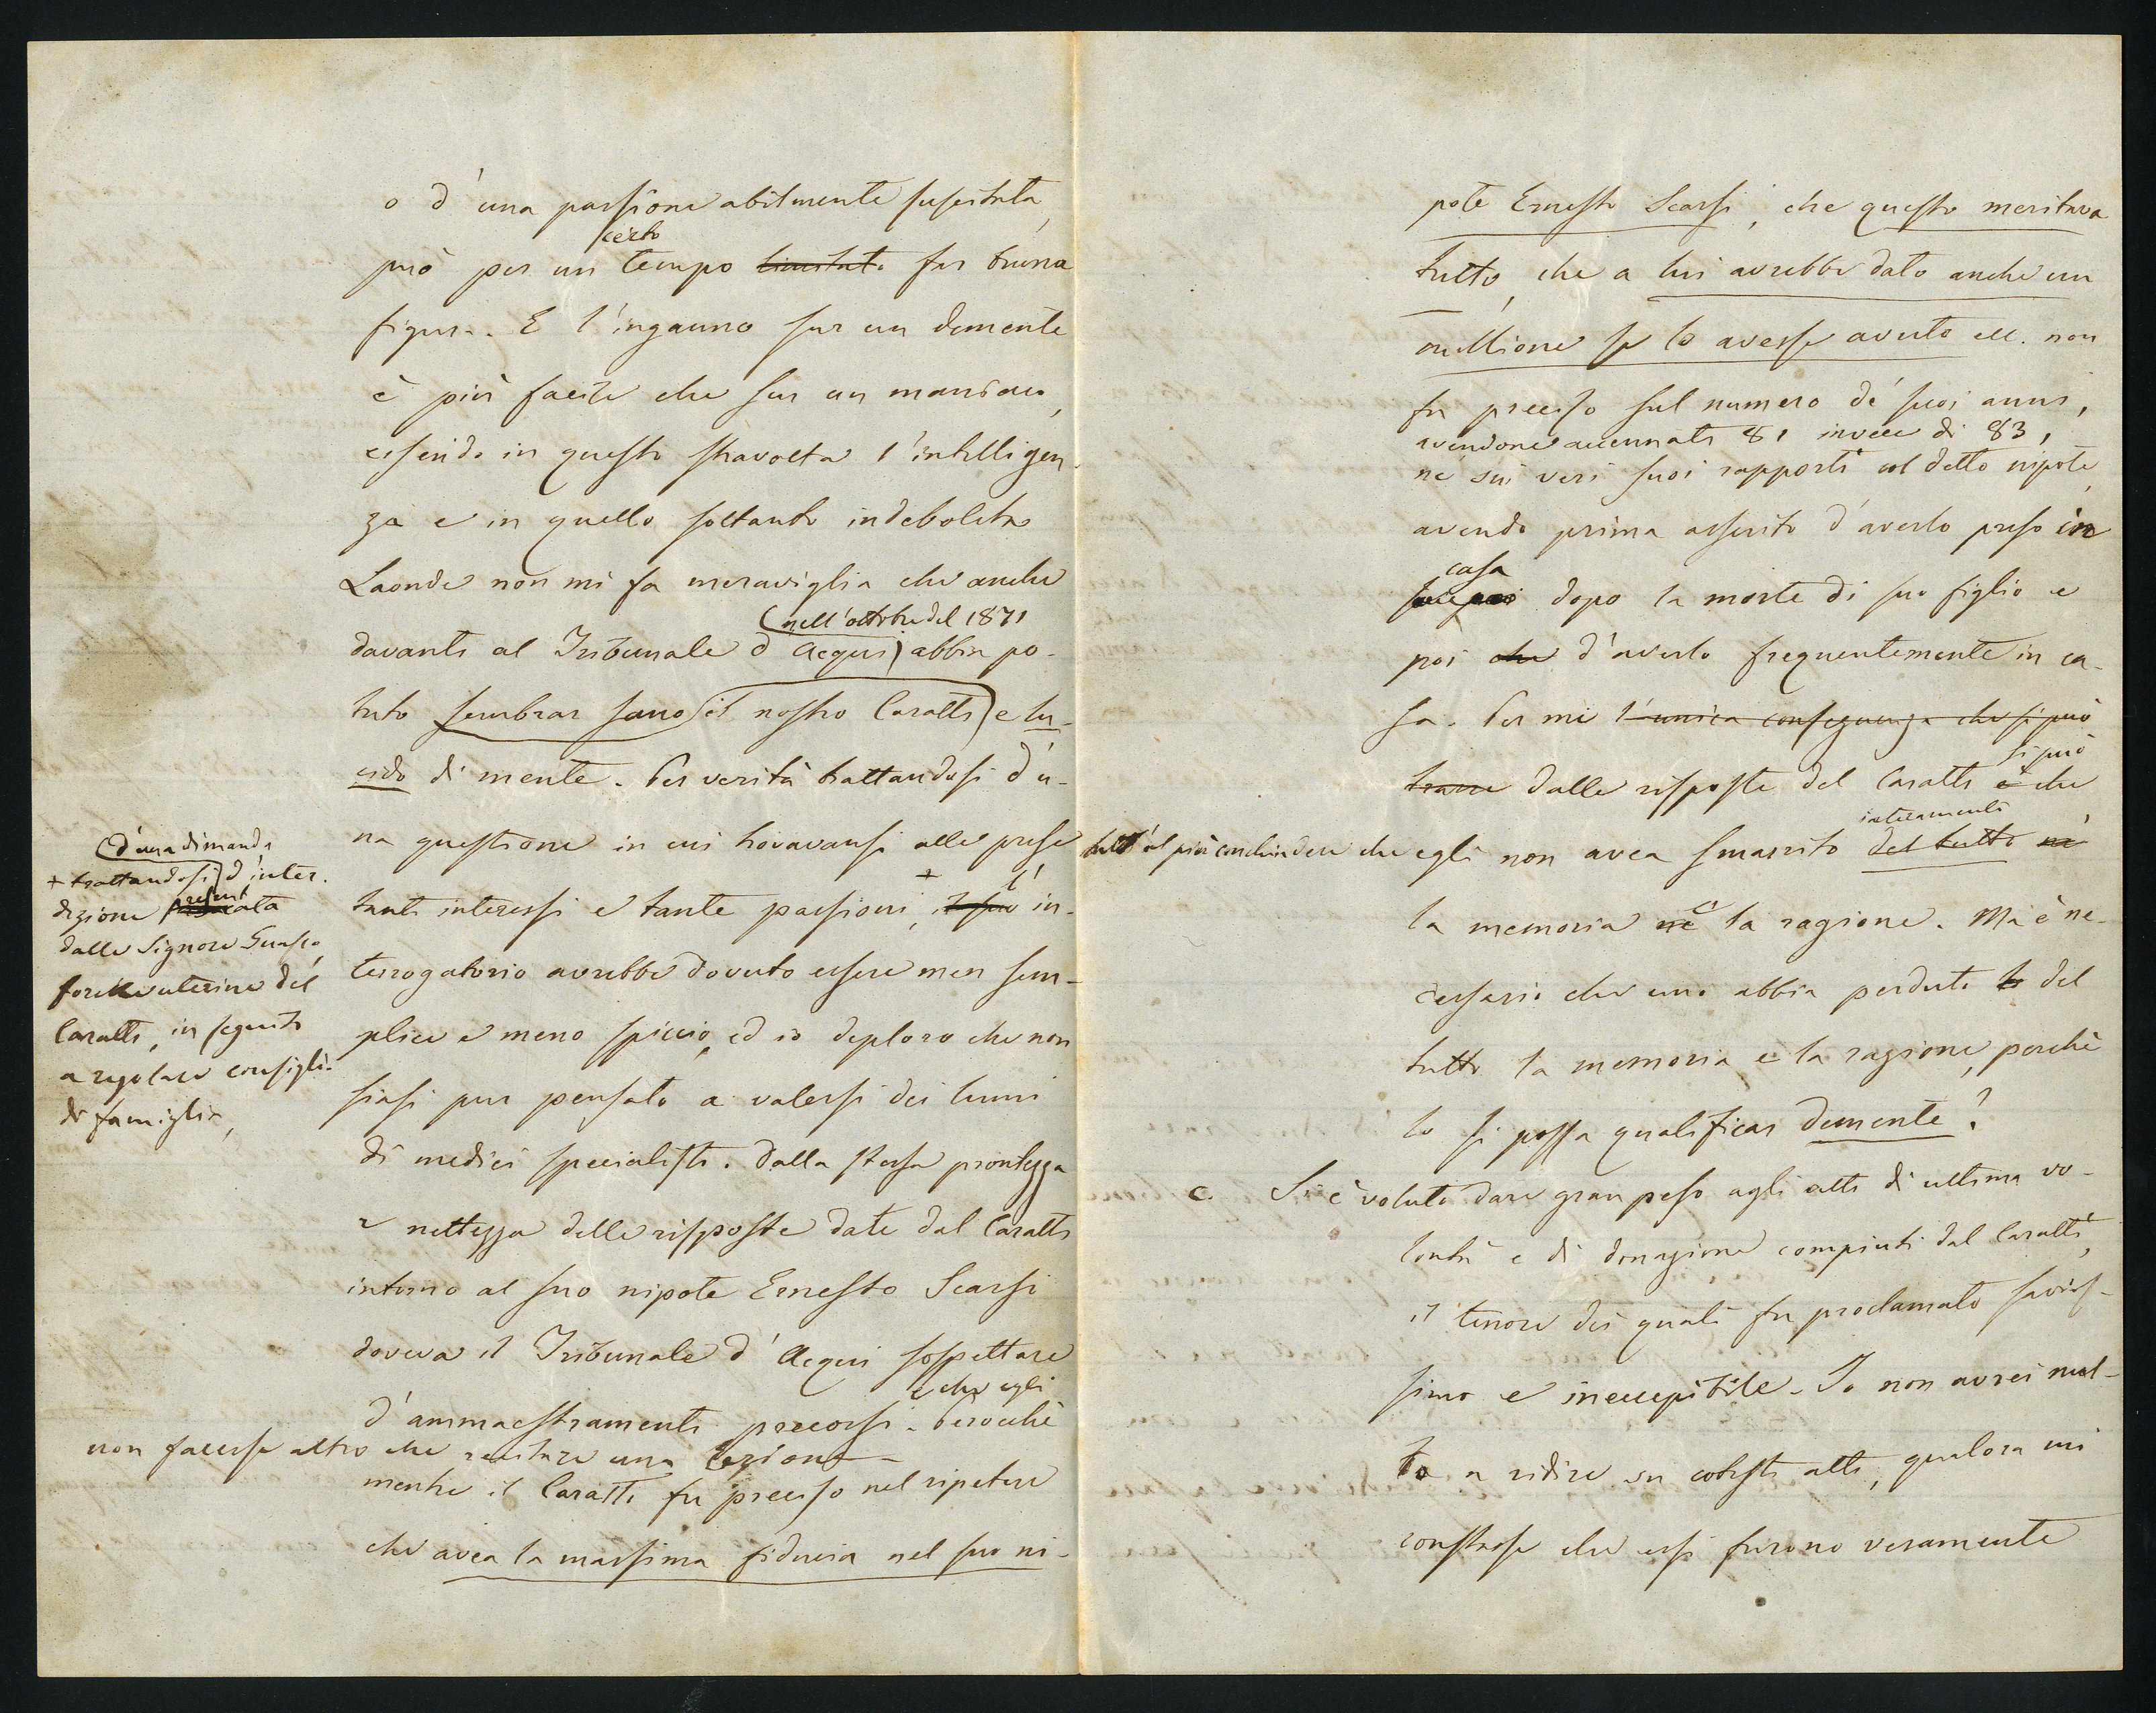 o d'una passione abilmente suscitata,
certo
può per un tempo limitato far buona
figura. E l'inganno sur un demente
è più facile che sur un maniaco,
essendo in questo stravolta l'intelligen-
za e in quello soltanto indebolita.
Laonde non mi fa meraviglia che anche
(nell'8tobre del 1871
davanti al Tribunale d'Acqui) abbia po-
tuto sembrar sano (il nostro Caratti) e lu-
cido di mente. Per verità trattandosi d'u-
na questione in cui trovavansi alle prese
tanti interessi e tante passioni, + il suo l'in-
terrogatorio avrebbe dovuto essere men sem-
plice e meno spiccio, ed io deploro che non
siasi pur pensato a valersi dei lumi
di medici specialisti. Dalla stessa prontezza
e nettezza delle risposte date dal Caratti
intorno al suo nipote Ernesto Scarsi
doveva il Tribunale d'Acqui sospettare
e che egli
d'ammaestramenti precorsi. Perocchè
non facesse altro che recitare una lezione.
mentre il Caratti fu preciso nel ripetere
che avea la massima fiducia nel suo ni-
(d'una dimanda
+ trattandosi) d'inter-
dizione presentata
dalle Signore Guasco,
sorelle uterine del
Caratti, in seguito
a regolare consiglio
di famiglia,
pote Ernesto Scarsi, che questo meritava
tutto, che a lui avrebbe dato anche un
millione se lo avesse avuto ecc. non
fu preciso sul numero de' suoi anni,
avendone accennati 81 invece di 83,
nè sui veri suoi rapporti col detto nipote,
avendo prima asserito d'averlo preso in
casa
dopo la morte di suo figlio e
poi che d'averlo frequentemente in ca-
sa. Per me l'unica conseguenza che si può
si può
trarre dalle risposte del Caratti è che
interamente
tutt'al più conchiudere che egli non avea smarrito del tutto nè
la memoria nè e la ragione. Ma è ne-
cessario che uno abbia perduto la del
tutto la memoria e la ragione, perchè
lo si possa qualificar demente?
C. Si è voluto dare gran peso agli atti di ultima vo-
lontà e di donazione compiuti dal Caratti,
il tenore dei quali fu proclamato savis-
simo e ineccepibile. Io non avrei nul-
la a ridire su cotesti atti, qualora mi
constasse che essi furono veramente